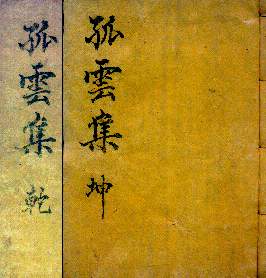 孤雲集 坤
孤雲集 乾